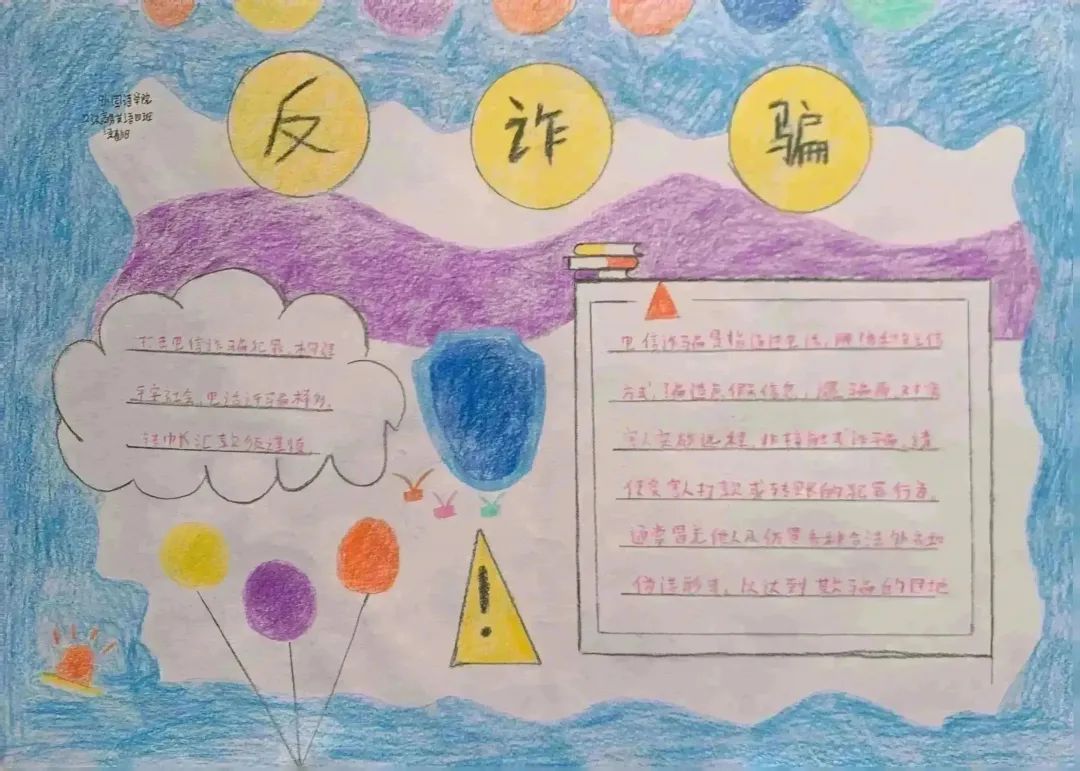 外国语学院
反 诈 骗
打击电信诈骗犯罪,构建
平安社会,电话诈骗样多,
转帐汇款须谨慎。
电信诈骗是指通过电话、网络和短信
方式,编造虚假信息,骗局,对受
害人实施远程、非接触式诈骗,诱
使受害人打款或转账的犯罪行为,
通常冒充他人及仿冒各种合法外衣和
伪造形式,以达到欺骗的目地